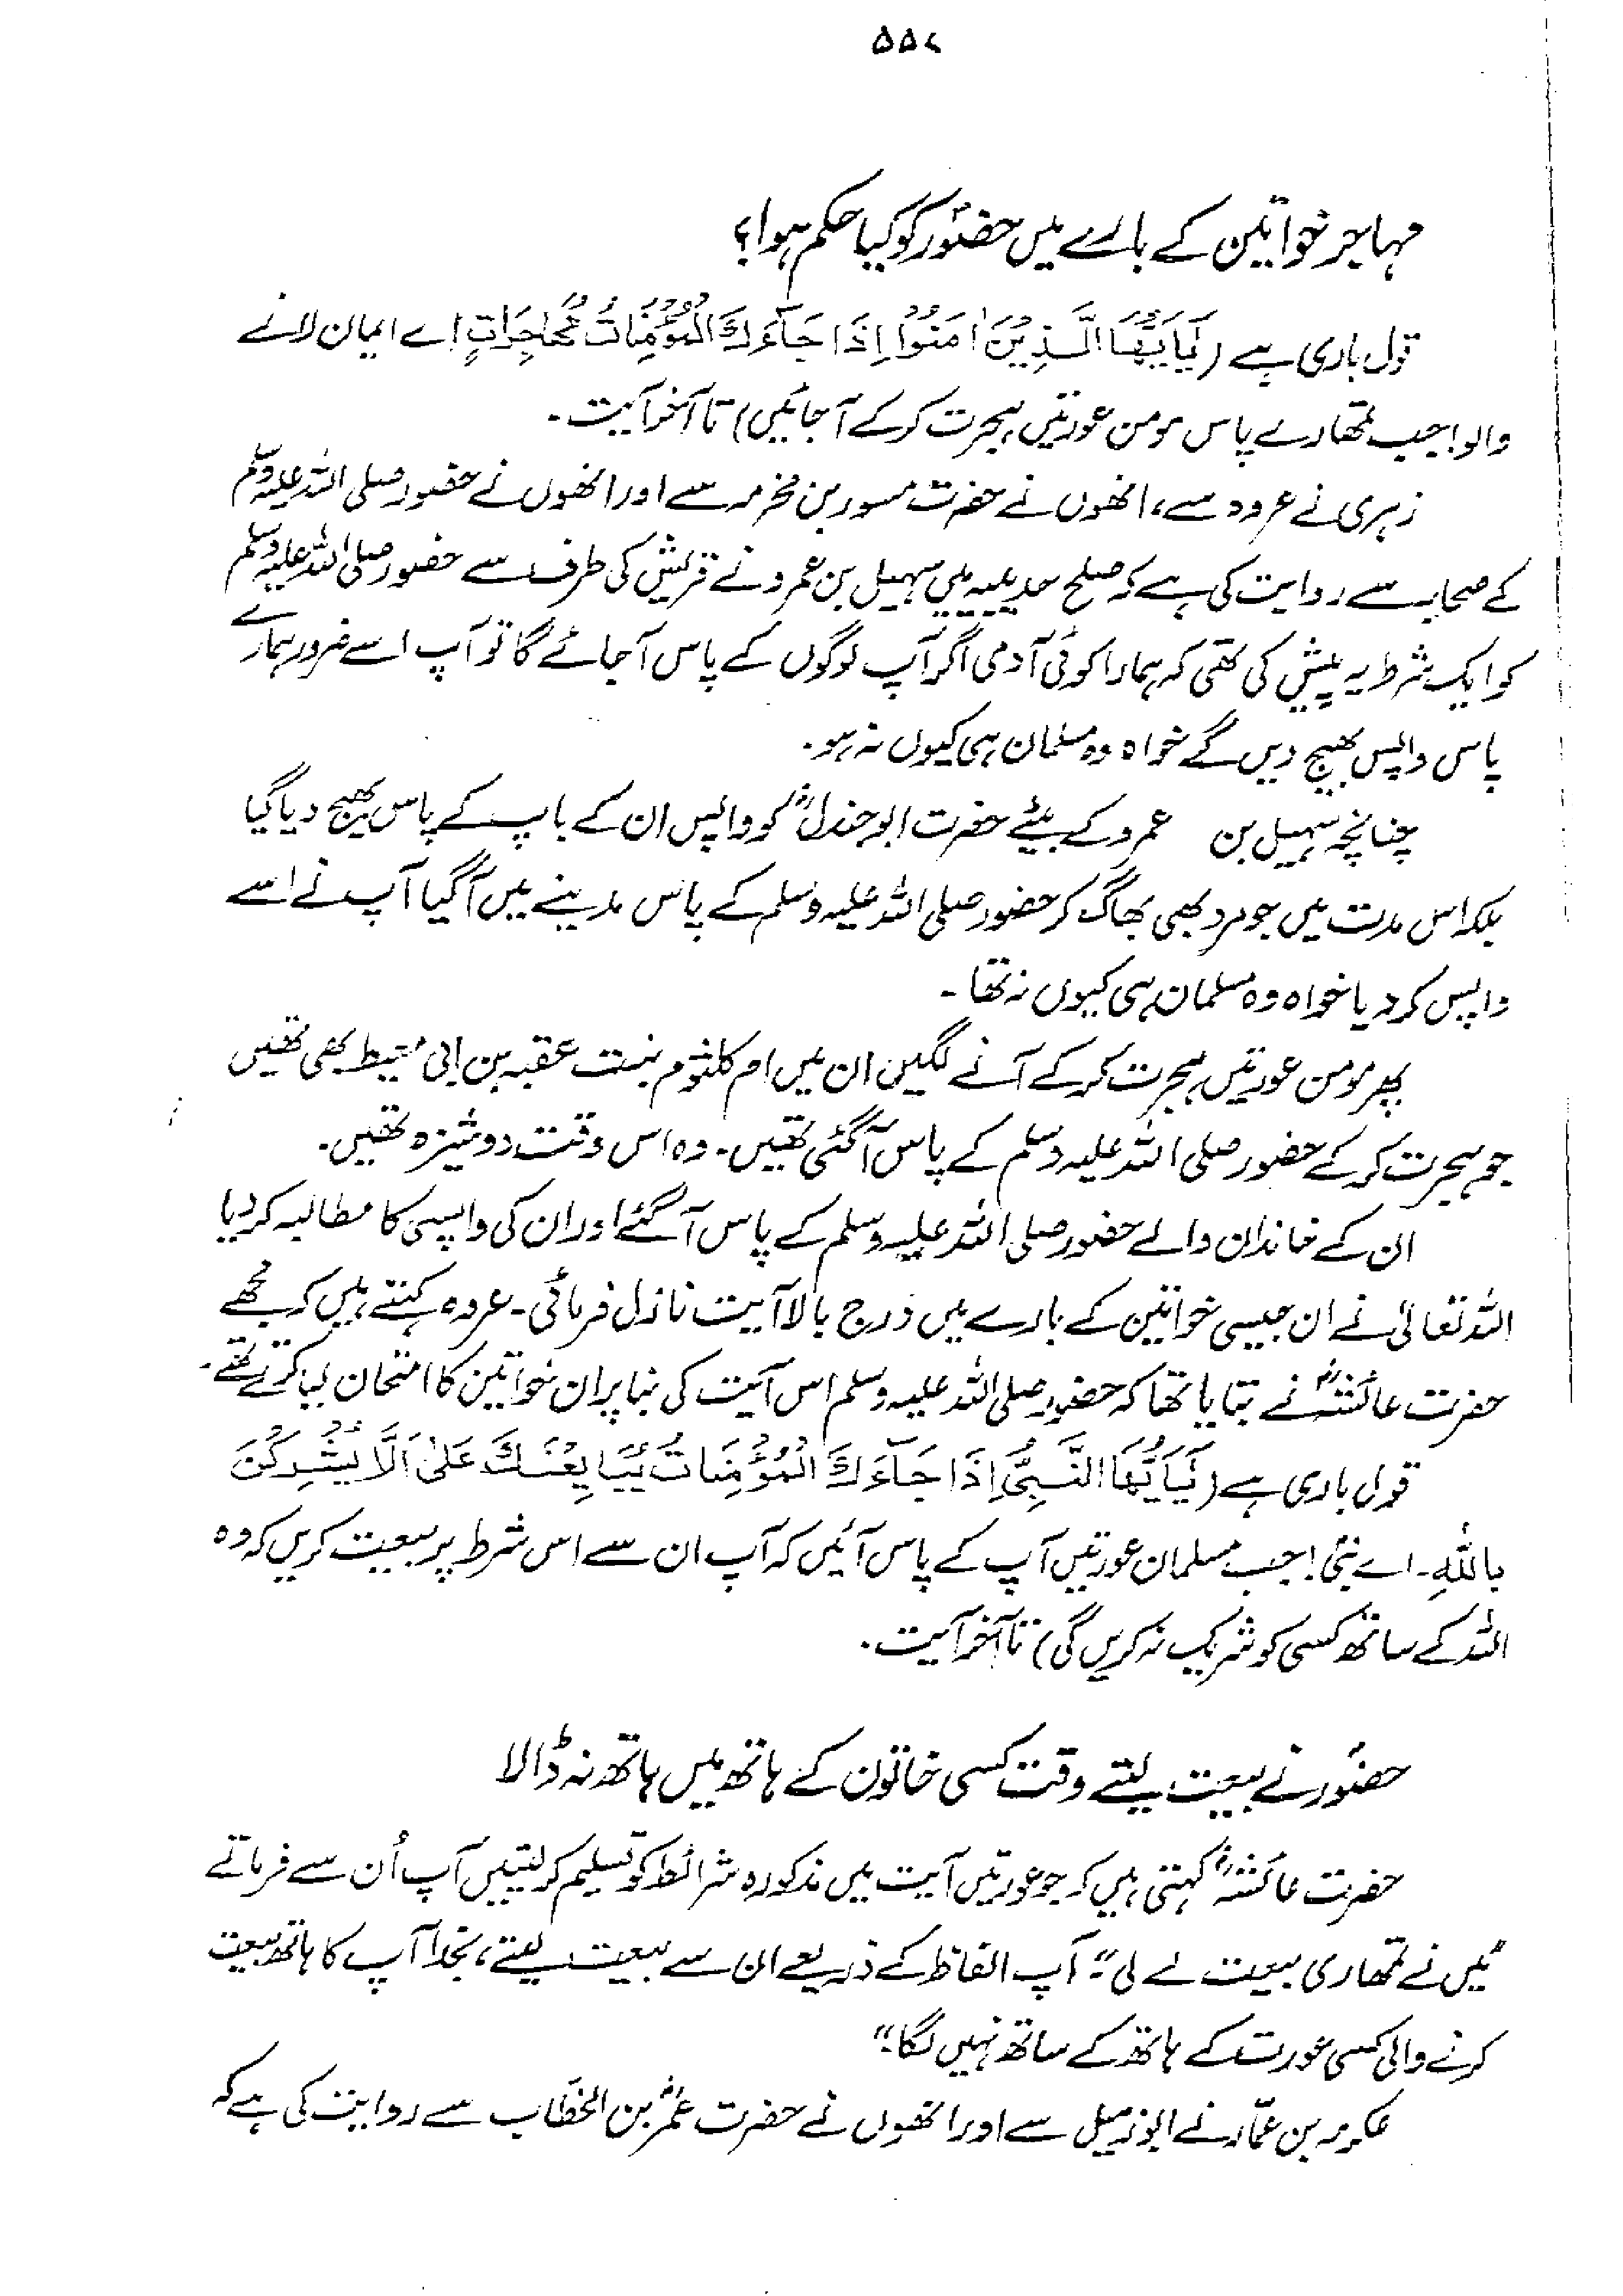 ۵۵۷
مہاجر خواتین کے بارے میں حضورؐ کو کیا حکم ہوا؟
قول باری ہے (يٰٓاَيُّهَا الَّذِيْنَ اٰمَنُوْا اِذَا جَآءَكَ الْمُؤْمِنَاتُ مُهَاجِرَاتٍ اے ایمان لانے
والو! جب تمھارے پاس مومن عورتیں ہجرت کرکے آجائیں) تا آخر آیت۔
زہری نے عروہ سے، انھوں نے حضرت مسور بن مخرمہ سے اور انھوں نے حضور صلی اللہ علیہ وسلم
کے صحابہ سے روایت کی ہے کہ صلح حدیبیہ میں سہیل بن عمرو نے قریش کی طرف سے حضور صلی اللہ علیہ وسلم
کو ایک شرط یہ پیش کی تھی کہ ہمارا کوئی آدمی اگر آپ لوگوں کے پاس آجائے گا تو آپ اسے ضرور ہمارے
پاس واپس بھیج دیں گے خواہ وہ مسلمان ہی کیوں نہ ہو۔
چنانچہ سہیل بن عمرو کے بیٹے حضرت ابوجندلؓ کو واپس ان کے باپ کے پاس بھیج دیا گیا
بلکہ اس مدت میں جو مرد بھی بھاگ کر حضور صلی اللہ علیہ وسلم کے پاس مدینے میں آگیا آپ نے اسے
واپس کردیا خواہ وہ مسلمان ہی کیوں نہ تھا۔
پھر مومن عورتیں ہجرت کرکے آنے لگیں ان میں ام کلثوم بنت عقبہ بن ابی معیط بھی تھیں
جو ہجرت کرکے حضور صلی اللہ علیہ وسلم کے پاس آگئی تھیں۔ وہ اس وقت دوشیزہ تھیں۔
ان کے خاندان والے حضور صلی اللہ علیہ وسلم کے پاس آگئے اور ان کی واپسی کا مطالبہ کردیا
اللہ تعالیٰ نے ان جیسی خواتین کے بارے میں درج بالا آیت نازل فرمائی۔ عروہ کہتے ہیں کہ مجھے
حضرت عائشہؓ نے بتایا تھا کہ حضور صلی اللہ علیہ وسلم اس آیت کی بنا پر ان خواتین کا امتحان لیا کرتے تھے۔
قول باری ہے (يٰٓاَيُّهَا النَّبِيُّ اِذَا جَآءَكَ الْمُؤْمِنَاتُ يُبَايِعْنَكَ عَلٰى اَلَّا يُشْرِكْنَ
بِاللّٰهِ۔ اے نبیؐ! جب مسلمان عورتیں آپ کے پاس آئیں کہ آپ ان سے اس شرط پر بیعت کریں کہ وہ
اللہ کے ساتھ کسی کو شریک نہ کریں گی) تا آخر آیت۔
حضورؐ نے بیعت لیتے وقت کسی خاتون کے ہاتھ میں ہاتھ نہ ڈالا
حضرت عائشہؓ کہتی ہیں کہ جو عورتیں آیت میں مذکورہ شرائط کو تسلیم کرلیتیں آپ اُن سے فرماتے
”میں نے تمھاری بیعت لے لی“۔ آپ الفاظ کے ذریعے ان سے بیعت لیتے، بخدا آپ کا ہاتھ بیعت
کرنے والی کسی عورت کے ہاتھ کے ساتھ نہیں لگا۔“
عکرمہ بن عمّار نے ابوزمیل سے اور انھوں نے حضرت عمرؓ بن الخطاب سے روایت کی ہے کہ